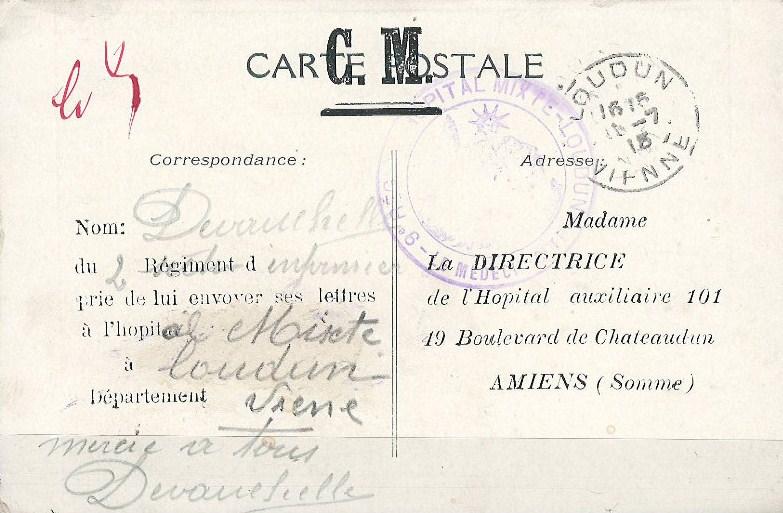 C. M.
CARTE POSTALE
HOPITAL MIXTE - LOUDUN
LE MEDECIN
LOUDUN
16 15
15
VIENNE
Correspondance :
Nom: Devauchelle
du 2 Régiment d infirmier
prie de lui envoyer ses lettres
à l'hopital Mixte
à loudun
Département Viene
mercie a tous
Devauchelle
Adresse:
Madame
La DIRECTRICE
de l'Hopital auxiliaire 101
49 Boulevard de Chateaudun
AMIENS (Somme)